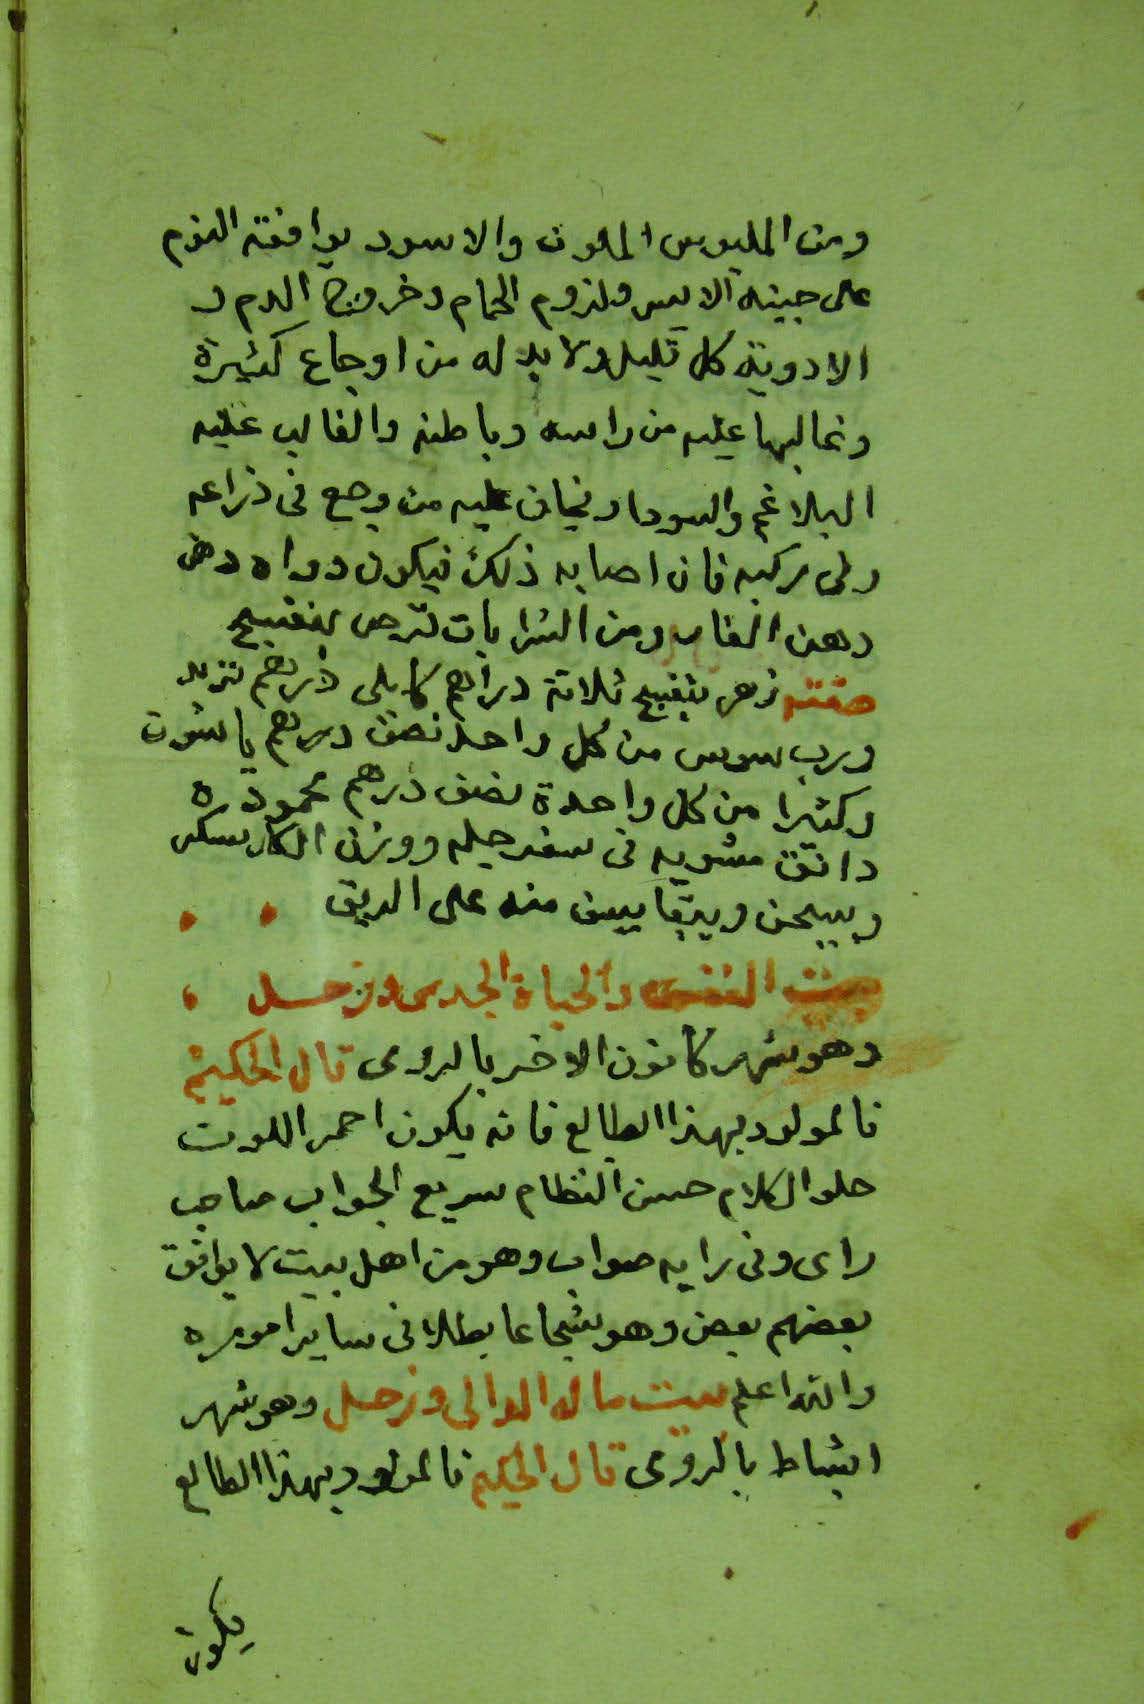 ومن الملبوس الملون والاسود يوافقه النوم
على جنبه الايسر ولزوم الحمام وخروج الدم و
الادوية كل قليل ولا بد له من اوجاع كثيرة
وغالبها عليه من راسه وباطنه والغالب عليه
البلاغم والسودا ويخاف عليه من وجع في ذراعه
وفي ركبه فان اصابه ذلك فيكون دواه دهن
دهن الغار ومن الشرابات قرص بنفسج
صفته زهر بنفسج ثلاثة دراهم كابلي درهم تربد
ورب سوس من كل واحد نصف درهم
وكثيرا من كل واحدة نصف درهم محموده
دانق مشويه في سفرجله ووزن الكل سكر
ويسحق منه على الريق
بيت النفس والحياة الجدي وزحل
وهو شهر كانون الاخر بالرومي قال الحكيم
فالمولود بهذا الطالع فانه يكون احمر اللون
حلو الكلام حسن النظام سريع الجواب صاحب
راى وفي رايه صواب وهو من اهل بيت لا يوافق
بعضهم بعض وهو شجاعا بطلا في ساير اموره
والله اعلم بيت ماله الدالي وزحل وهو شهر
اشباط بالرومي قال الحكيم فالمولود بهذا الطالع
يكون